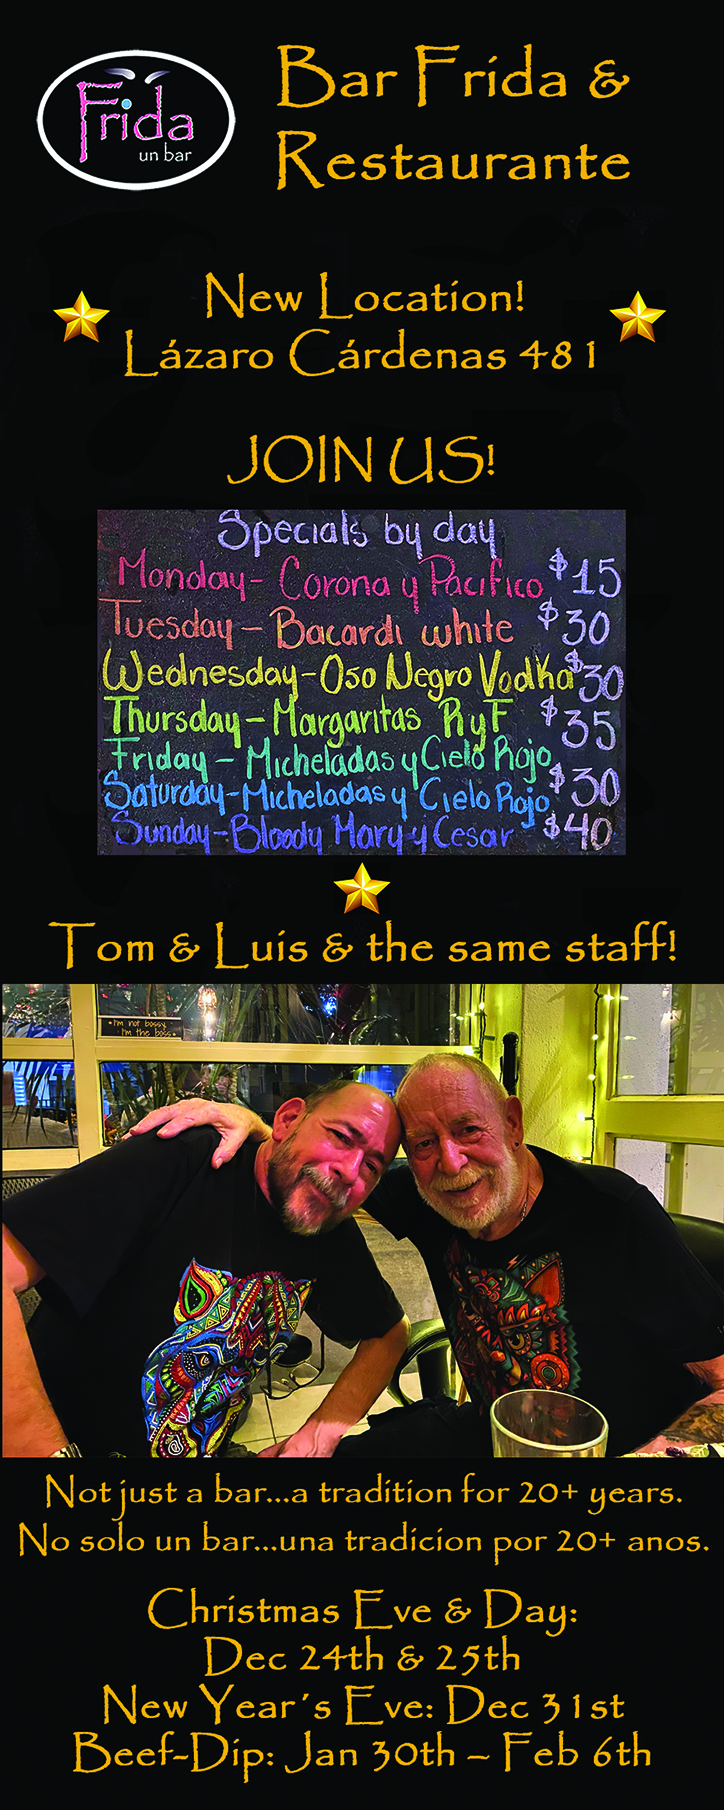 Frida
un bar
Bar Frida &
Restaurante
New Location!
Lázaro Cárdenas 481
JOIN US!
Specials by day
Monday - Corona y Pacifico $15
Tuesday - Bacardi white $30
Wednesday - Oso Negro Vodka $30
Thursday - Margaritas RyF $35
Friday - Micheladas y Cielo Rojo
Saturday - Micheladas y Cielo Rojo $30
Sunday - Bloody Mary y Cesar $40
Tom & Luis & the same staff!
I'm not bossy
I'm the boss
Not just a bar...a tradition for 20+ years.
No solo un bar...una tradicion por 20+ anos.
Christmas Eve & Day:
Dec 24th & 25th
New Year´s Eve: Dec 31st
Beef-Dip: Jan 30th – Feb 6th